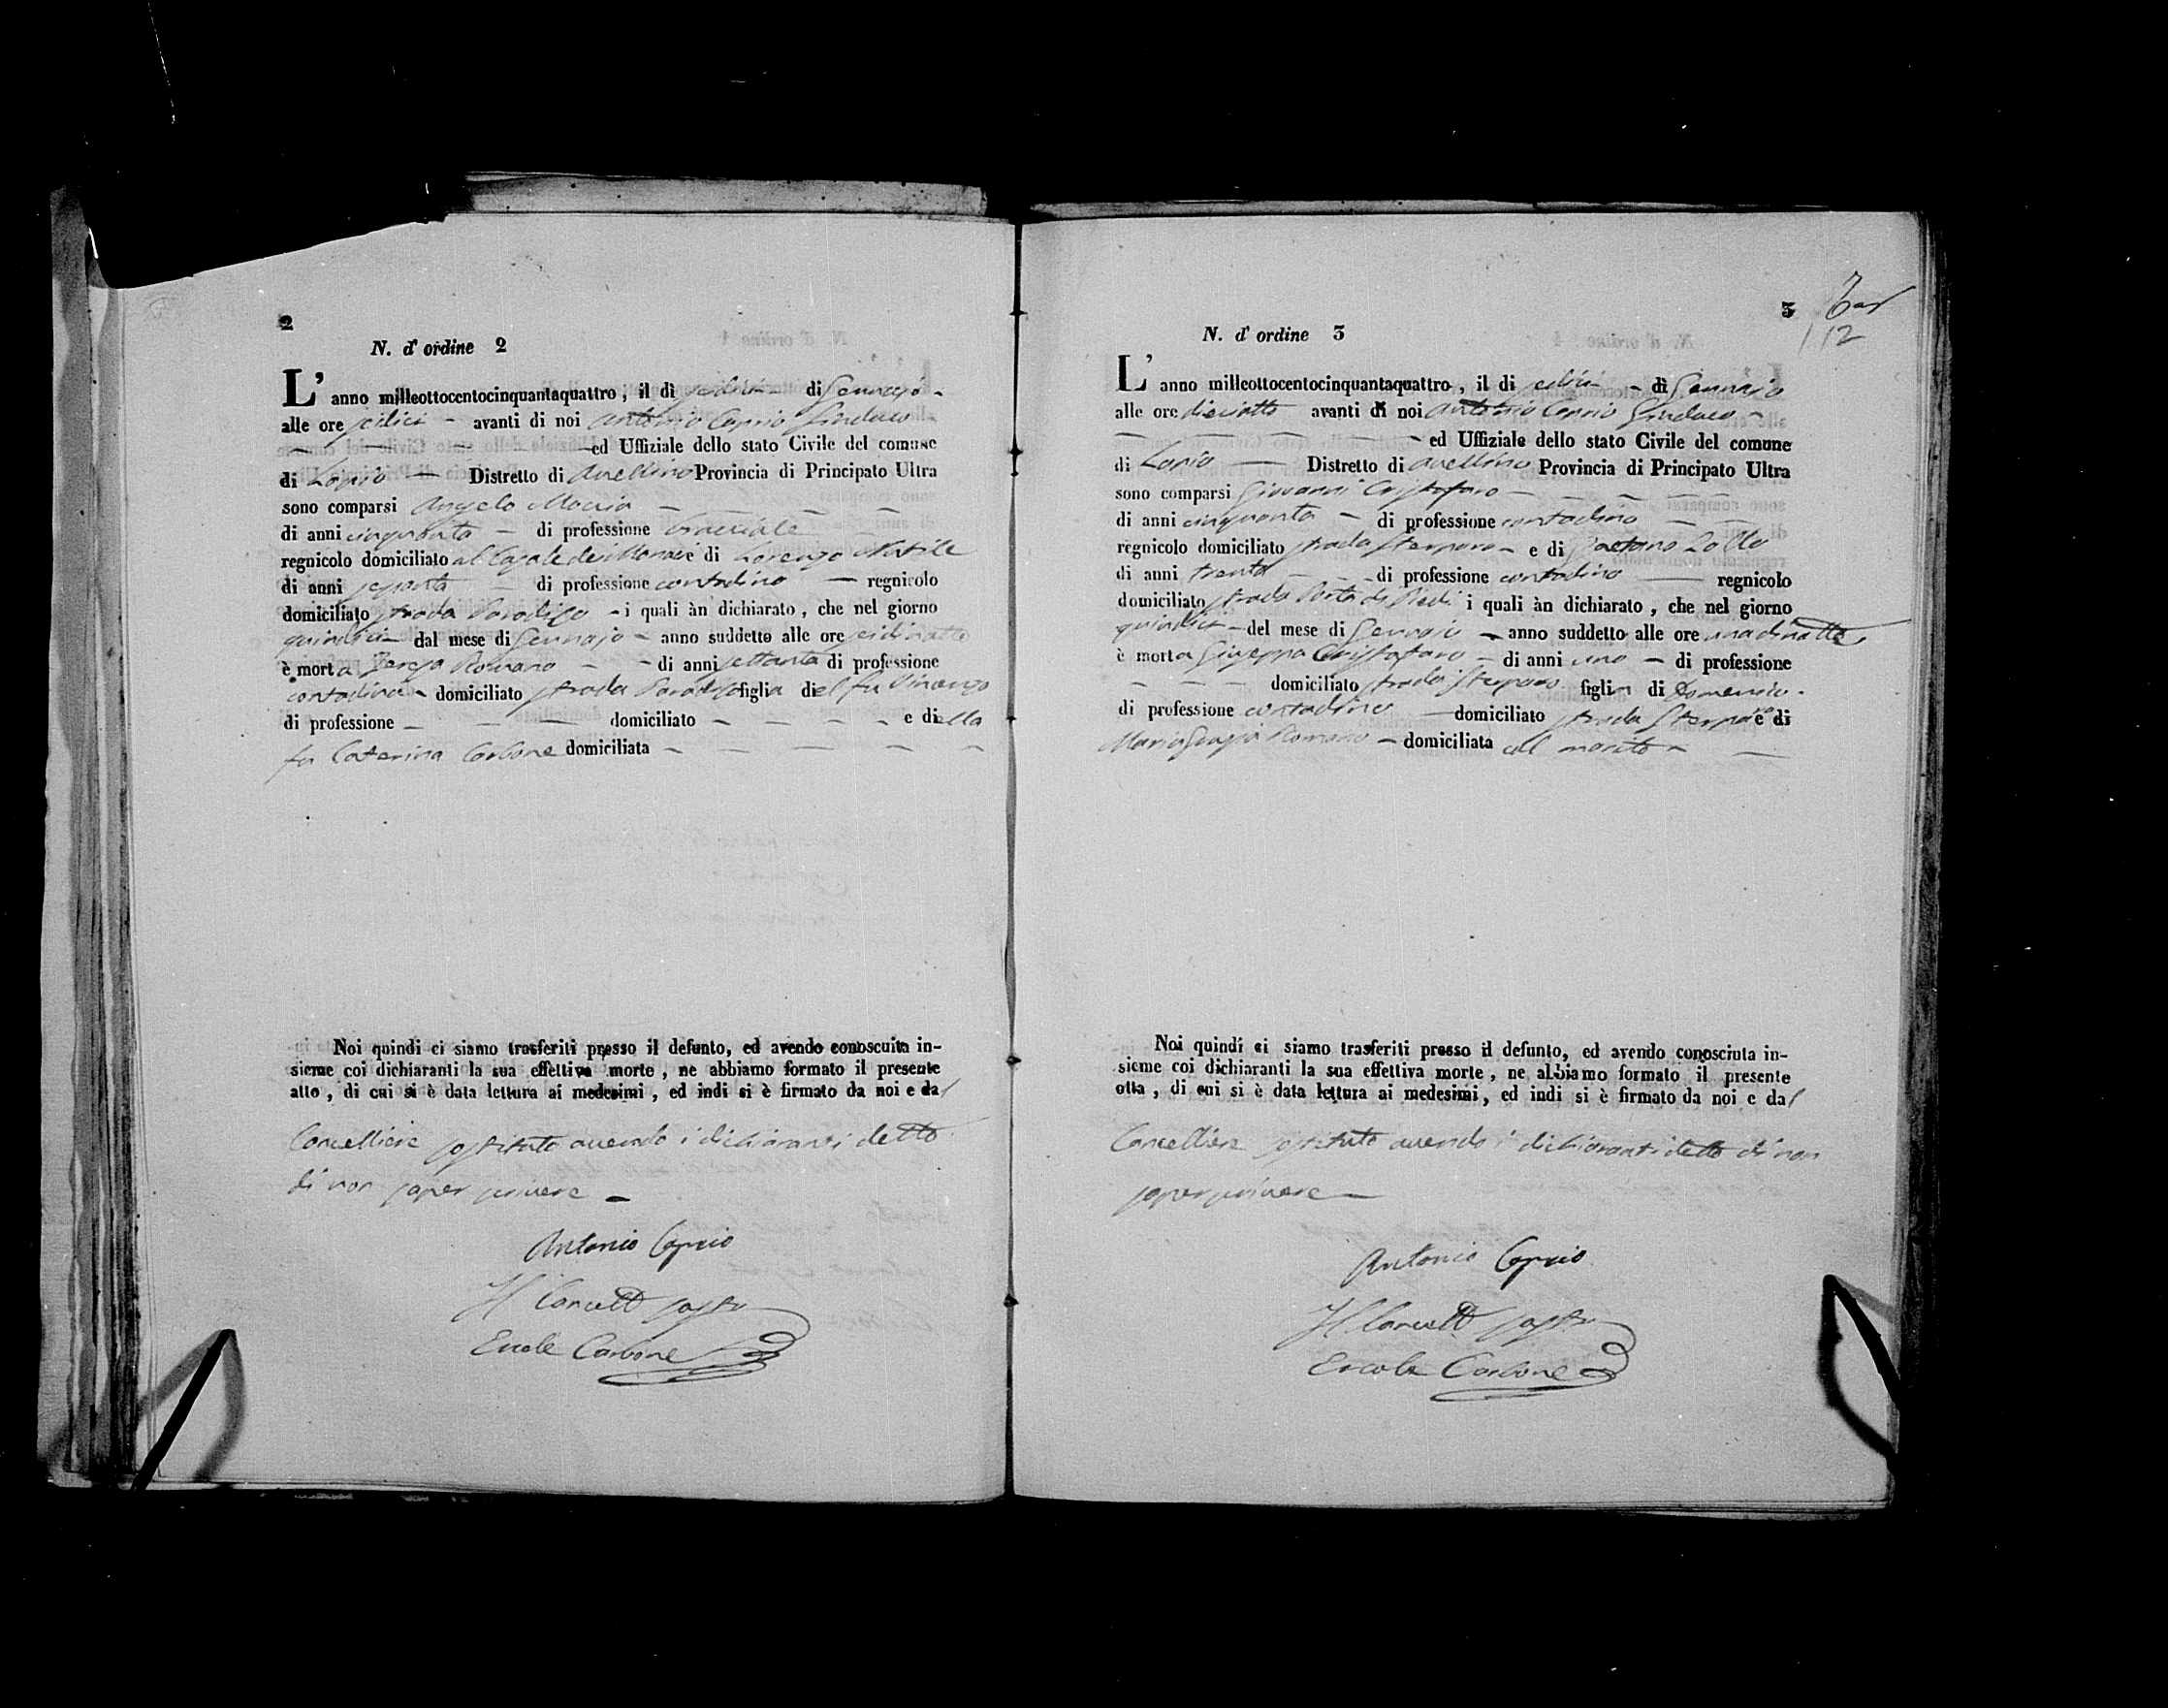 2
N. d' ordine 2
L' anno milleottocentocinquantaquattro, il dì sedici di Gennajo
alle ore sedici avanti di noi Antonio Caprio Sindaco
ed Uffiziale dello stato Civile del comune
di Lapio Distretto di Avellino Provincia di Principato Ultra
sono comparsi Angelo
di anni cinquanta di professione bracciale
regnicolo domiciliato al Casale dei e di Lorenzo
di anni sessanta di professione contadino regnicolo
domiciliato strada Paradiso i quali àn dichiarato, che nel giorno
quindici dal mese di Gennajo anno suddetto alle ore
è morta Romano di anni settanta di professione
contadina domiciliato strada Paradiso figlia del fu
di professione domiciliato e della
fu Caterina Carbone domiciliata
Noi quindi ci siamo trasferiti presso il defunto, ed avendo conosciuta in-
sieme coi dichiaranti la sua effettiva morte, ne abbiamo formato il presente
atto, di cui si è data lettura ai medesimi, ed indi si è firmato da noi e dal
Cancelliere sostituto avendo i dichiaranti detto
di non saper scrivere
Antonio Caprio
Il Cancell sostº
Ercole Carbone
3
12
N. d' ordine 3
L' anno milleottocentocinquantaquattro, il dì sedici di Gennaio
alle ore dieciotto avanti di noi Antonio Caprio Sindaco
ed Uffiziale dello stato Civile del comune
di Lapio Distretto di Avellino Provincia di Principato Ultra
sono comparsi Giovanni Cristofaro
di anni cinquanta di professione contadino
regnicolo domiciliato strada e di Gaetano
di anni trenta di professione contadino regnicolo
domiciliato strada Porta di Piedi i quali àn dichiarato, che nel giorno
quindici del mese di Gennaio anno suddetto alle ore una di notte
è morta Giuseppa Cristofaro di anni uno di professione
domiciliato strada figlia di Domenico
di professione contadino domiciliato strada e di
Maria Romano domiciliata col marito
Noi quindi ci siamo trasferiti presso il defunto, ed avendo conosciuta in-
sieme coi dichiaranti la sua effettiva morte, ne abbiamo formato il presente
otta, di cui si è data lettura ai medesimi, ed indi si è firmato da noi e dal
Cancelliere sostituto avendo i dichiaranti detto di non
saper scrivere
Antonio Caprio
Il Cancell sostº
Ercole Carbone